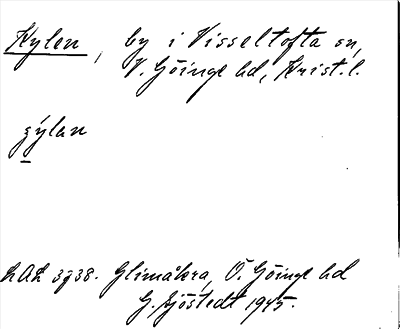 Kylen, by i Visseltofta sn,
V. Göinge hd, Krist. l.
zýlan
LAL 3938. Glimåkra, Ö. Göinge hd
G. Sjöstedt 1945.